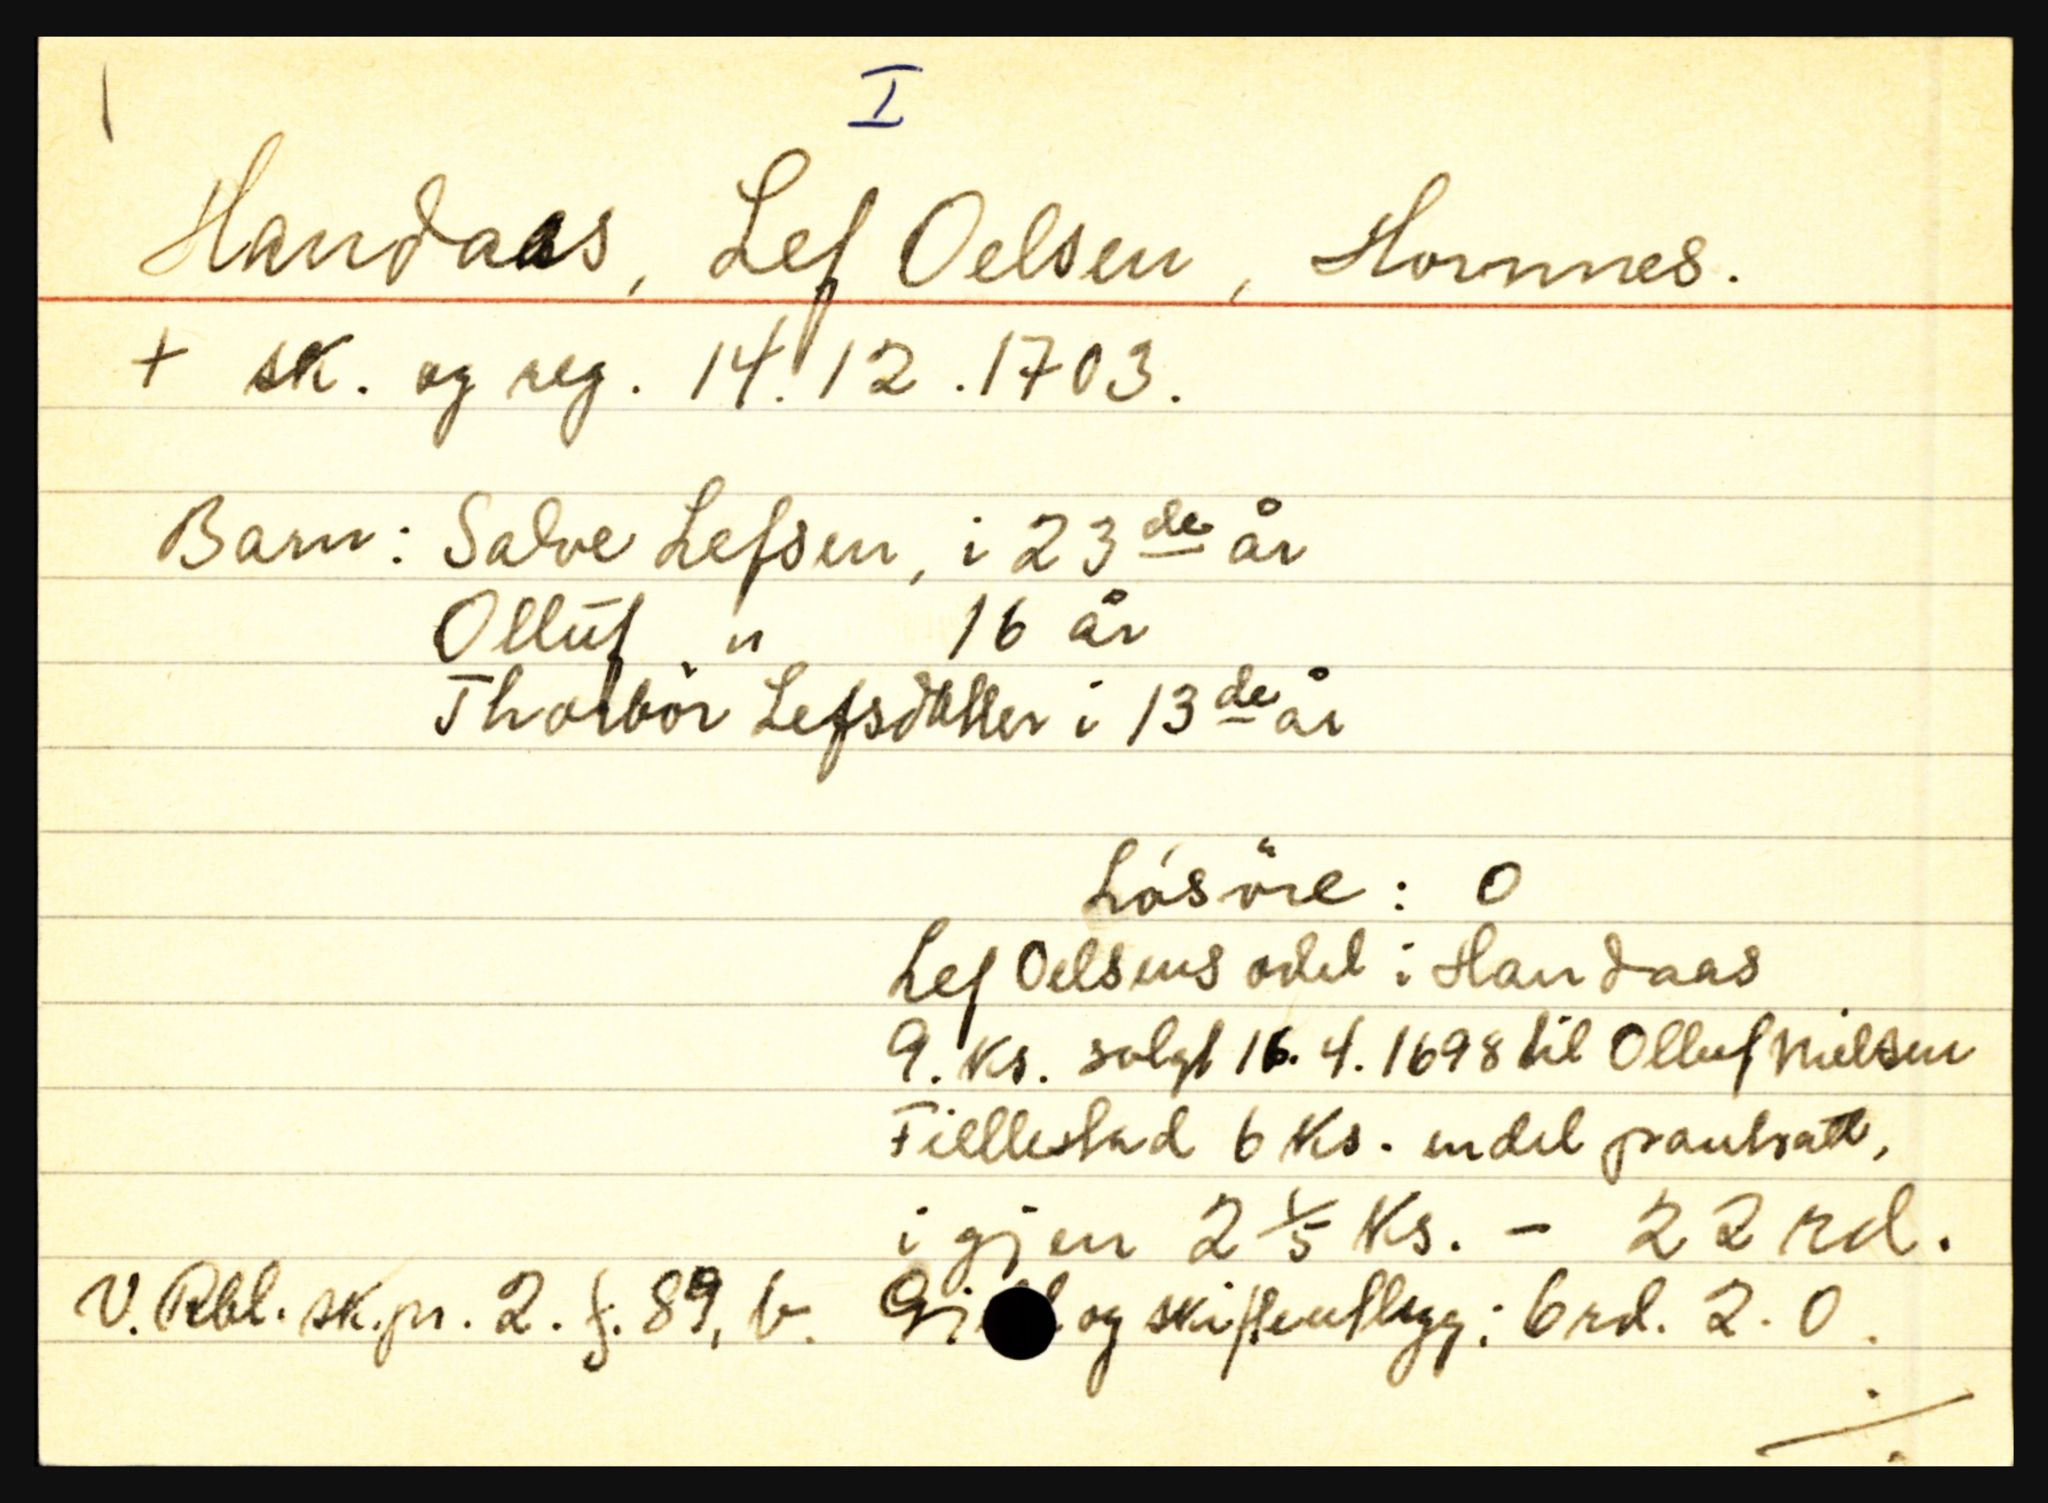 I
Handaas, Lef Oelsen, Hornnes.
+ sk. og reg. 14.12.1703.
Barn: Salve Lefsen, i 23de år
Olluf " 16 år
Thorbör Lefsdatter i 13de år
Lösöre: 0
Lef Oelsens odel i Handaas
9. Ks. solgt 16.4.1698 til Olluf Nielsen
Fiellestad 6 Ks. endel pantsatt,
igjen 2 1/5 Ks. - 22 rd.
V. Rbl. sk.pr. 2. f. 89, b. Gjeld og skifteutlegg: 6 rd. 2. 0.